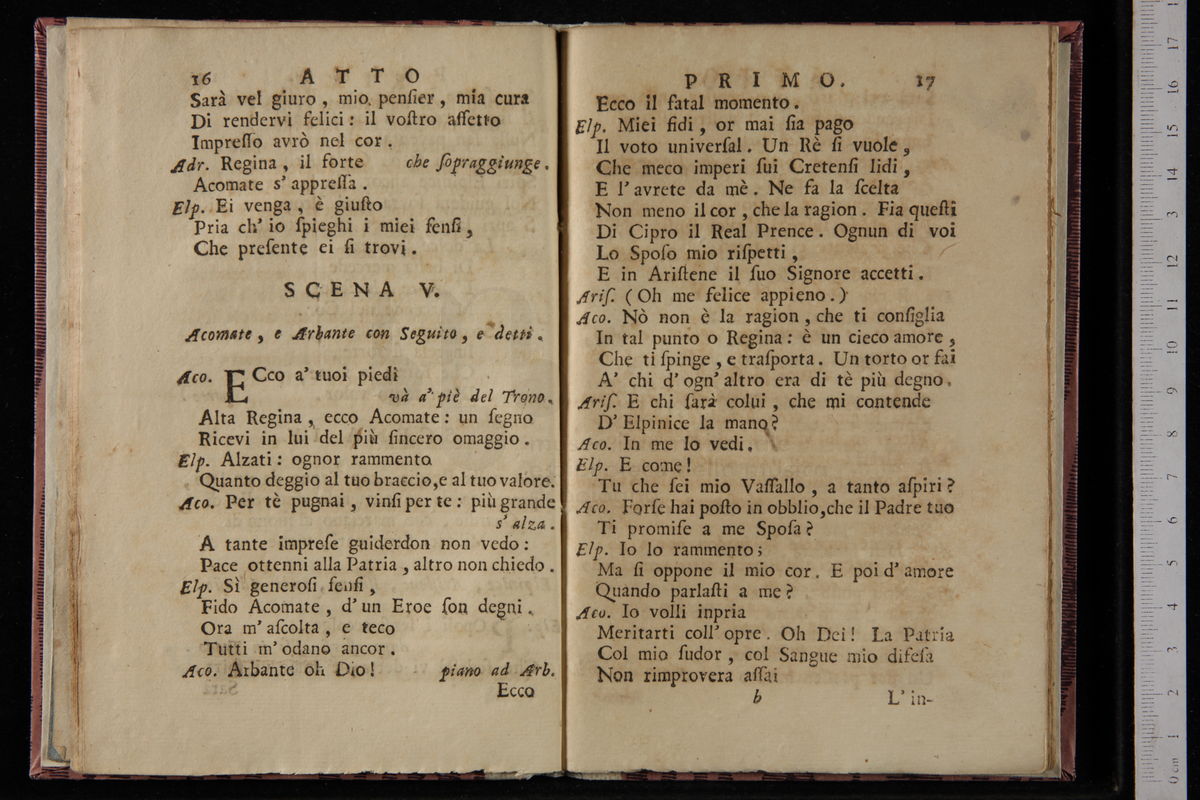 16 ATTO
Sarà vel giuro , mio penſier , mia cura
Di rendervi felici : il voſtro affetto
Impreſſo avrò nel cor .
Adr. Regina , il forte che ſopraggiunge .
Acomate s' appreſſa .
Elp. Ei venga , è giuſto
Pria ch' io ſpieghi i miei ſenſi ,
Che preſente ei ſi trovi .
SCENA V.
Acomate , e Arbante con Seguito , e detti .
Aco. ECco a' tuoi piedi
và a' piè del Trono .
Alta Regina , ecco Acomate : un ſegno
Ricevi in lui del più ſincero omaggio .
Elp. Alzati : ognor rammento
Quanto deggio al tuo braccio,e al tuo valore.
Aco. Per tè pugnai , vinſi per te : più grande
s' alza .
A tante impreſe guiderdon non vedo :
Pace ottenni alla Patria , altro non chiedo .
Elp. Sì generoſi ſenſi ,
Fido Acomate , d' un Eroe ſon degni .
Ora m' aſcolta , e teco
Tutti m' odano ancor .
Aco. Arbante oh Dio ! piano ad Arb.
Ecco
PRIMO. 17
Ecco il fatal momento .
Elp. Miei fidi , or mai ſia pago
Il voto univerſal . Un Rè ſi vuole ,
Che meco imperi ſui Cretenſi lidi ,
E l' avrete da mè . Ne fa la ſcelta
Non meno il cor , che la ragion . Fia queſti
Di Cipro il Real Prence . Ognun di voi
Lo Spoſo mio riſpetti ,
E in Ariſtene il ſuo Signore accetti .
Ariſ. ( Oh me felice appieno . )
Aco. Nò non è la ragion , che ti conſiglia
In tal punto o Regina : è un cieco amore ,
Che ti ſpinge , e traſporta . Un torto or fai
A' chi d' ogn' altro era di tè più degno .
Ariſ. E chi ſarà colui , che mi contende
D' Elpinice la mano ?
Aco. In me lo vedi .
Elp. E come !
Tu che ſei mio Vaſſallo , a tanto aſpiri ?
Aco. Forſe hai poſto in obblio,che il Padre tuo
Ti promiſe a me Spoſa ?
Elp. Io lo rammento ;
Ma ſi oppone il mio cor . E poi d' amore
Quando parlaſti a me ?
Aco. Io volli inpria
Meritarti coll' opre . Oh Dei ! La Patria
Col mio ſudor , col Sangue mio difeſa
Non rimprovera aſſai
b L' in-